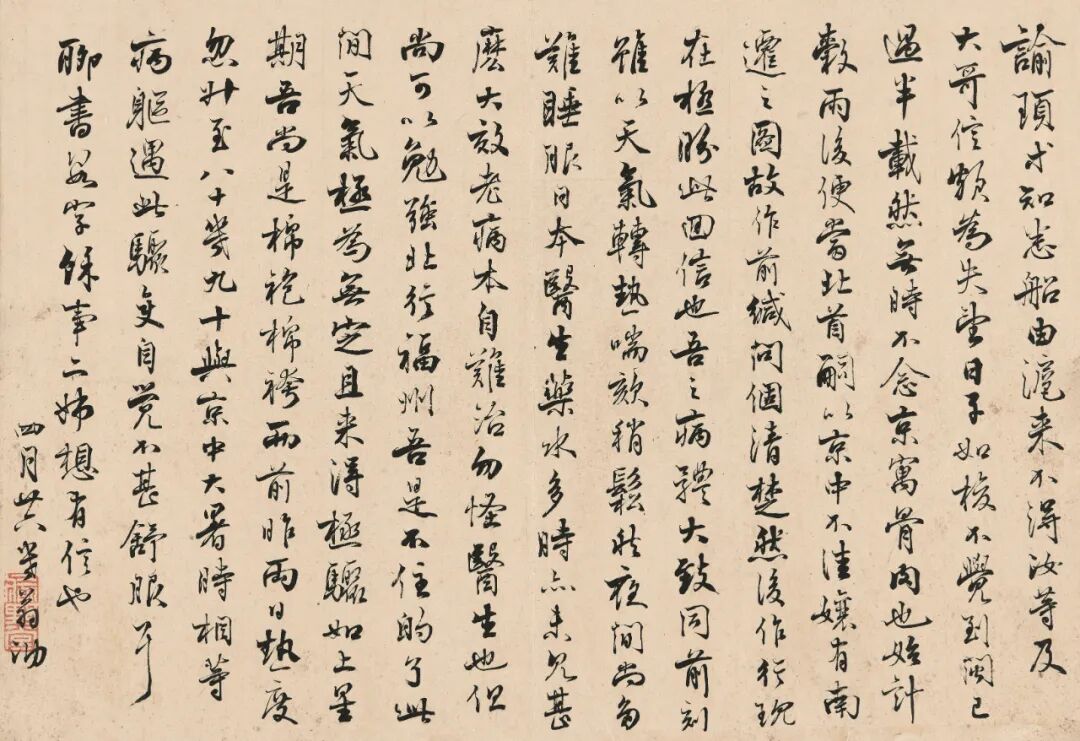 諭頊才知悉船由滬来不得汝等及
大哥信頗為失望日子如梭不覺到閩已
過半載然無時不念京寓骨肉也始計
穀雨後便當北首嗣以京中不佳孃有南
遷之圖故作前緘問個清楚然後作行現
在極盼此回信也吾之病體大致同前刻
雖以天氣轉熱喘欬稍鬆然夜間尚多
難睡眠日本醫生藥水多時亦未見甚
麽大效老病本自難治勿怪醫生也但
尚可以勉強北行福州吾是不住的了此
間天氣極為無定且来得極驟如上星
期吾尚是棉袍棉袴兩前昨兩日熱度
忽升至八十幾九十與京中大暑時相等
病軀遇此驟變自覺不甚舒服耳
聊書數字餘事二姊想有信也
四月廿六 翁泐